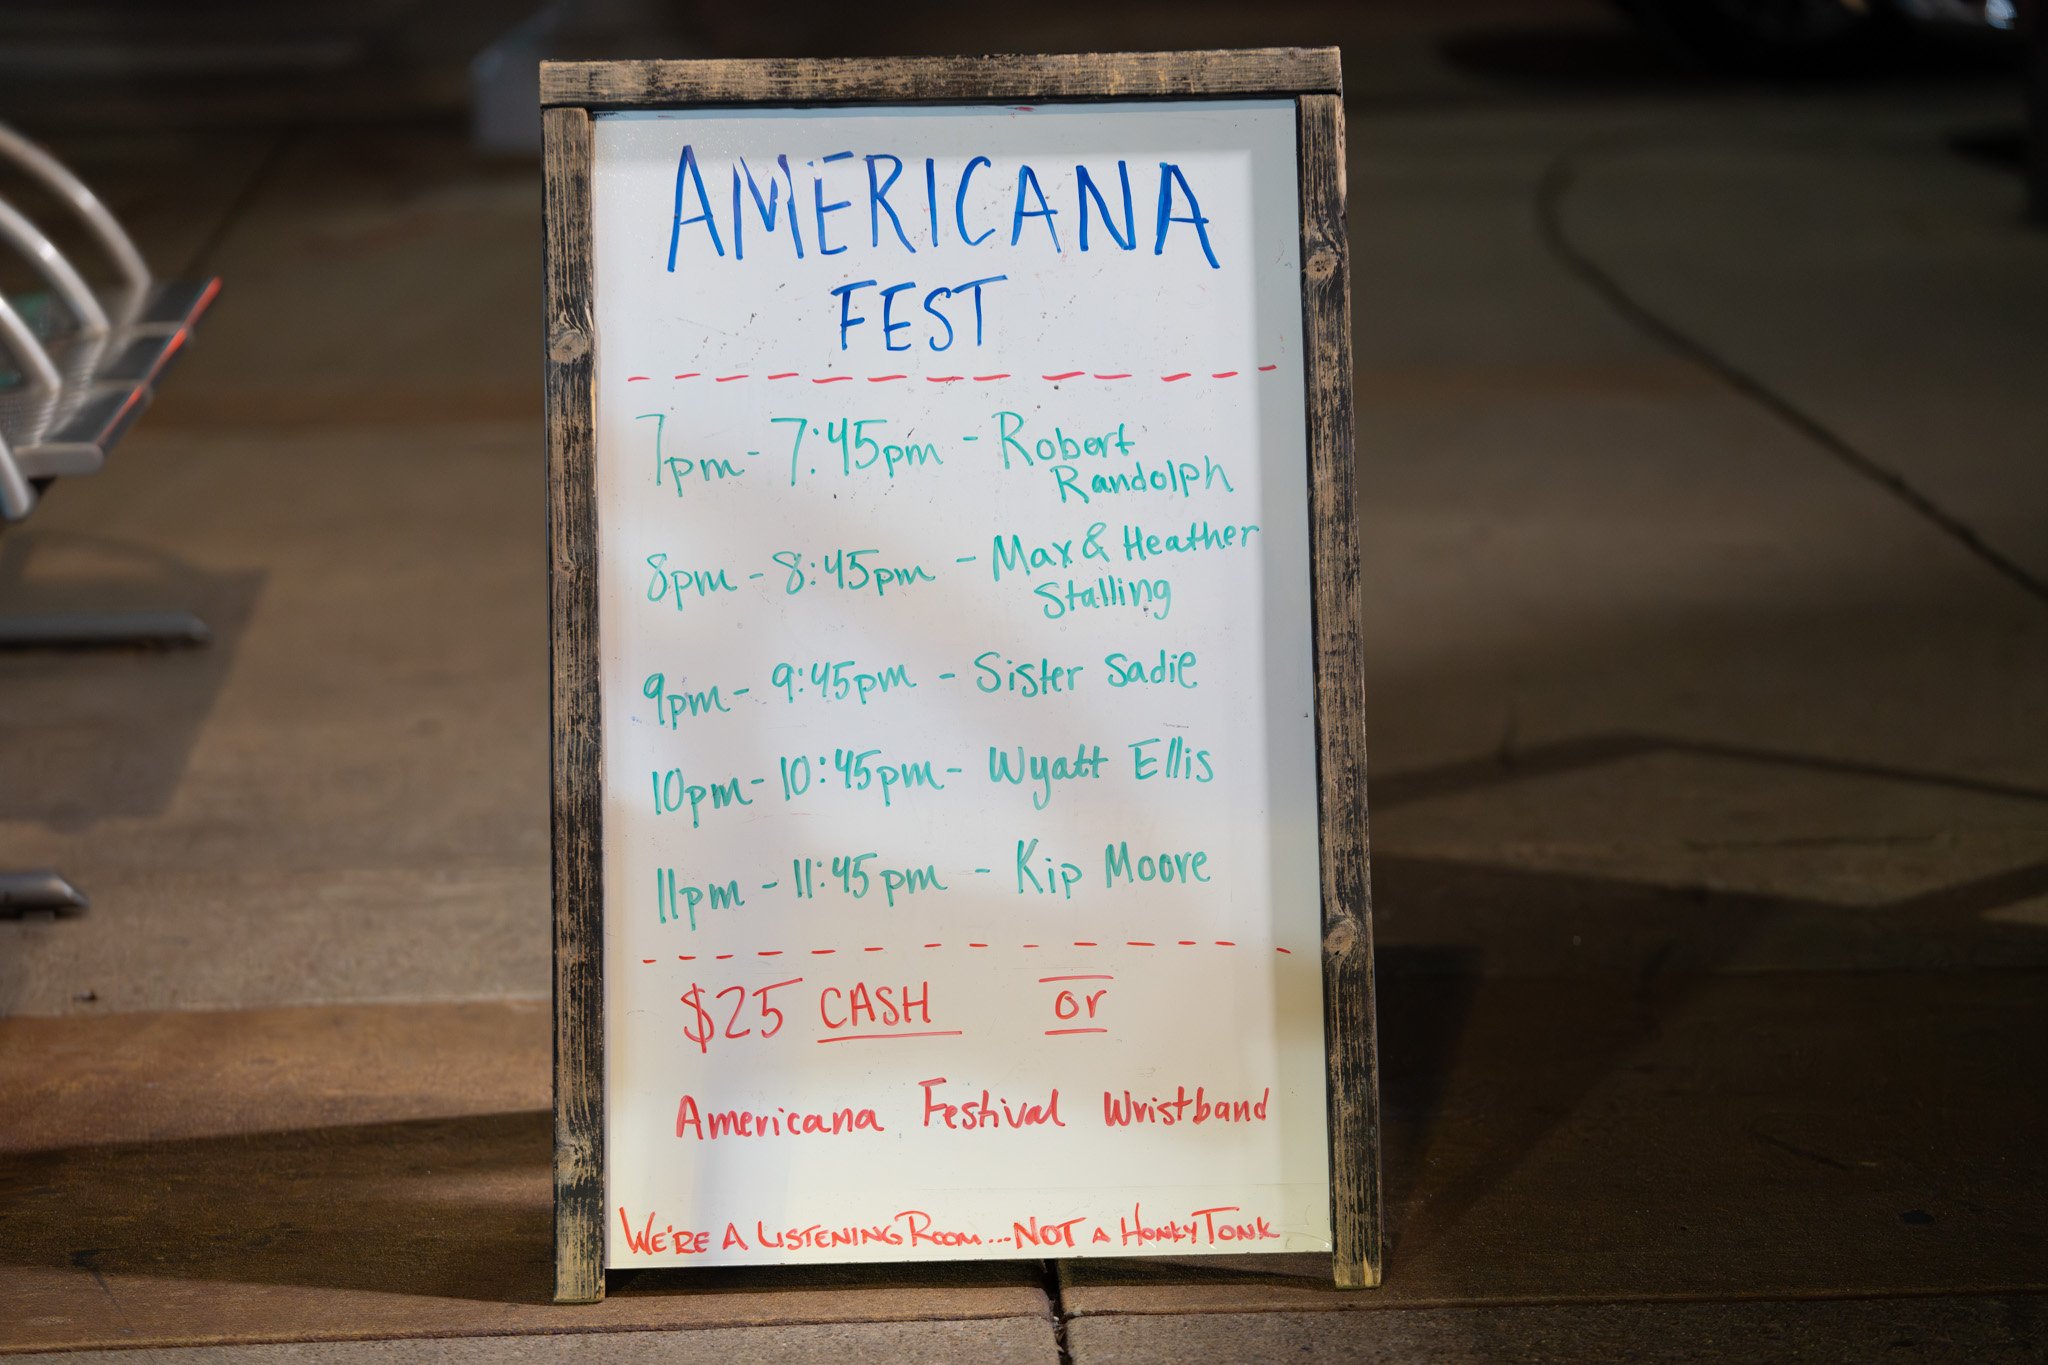 AMERICANA
FEST
7pm - 7:45pm - Robert
Randolph
8pm - 8:45pm - Max & Heather
Stalling
9pm - 9:45pm - Sister Sadie
10pm - 10:45pm - Wyatt Ellis
11pm - 11:45pm - Kip Moore
$25 CASH or
Americana Festival Wristband
WE'RE A LISTENING ROOM... NOT A HONKY TONK